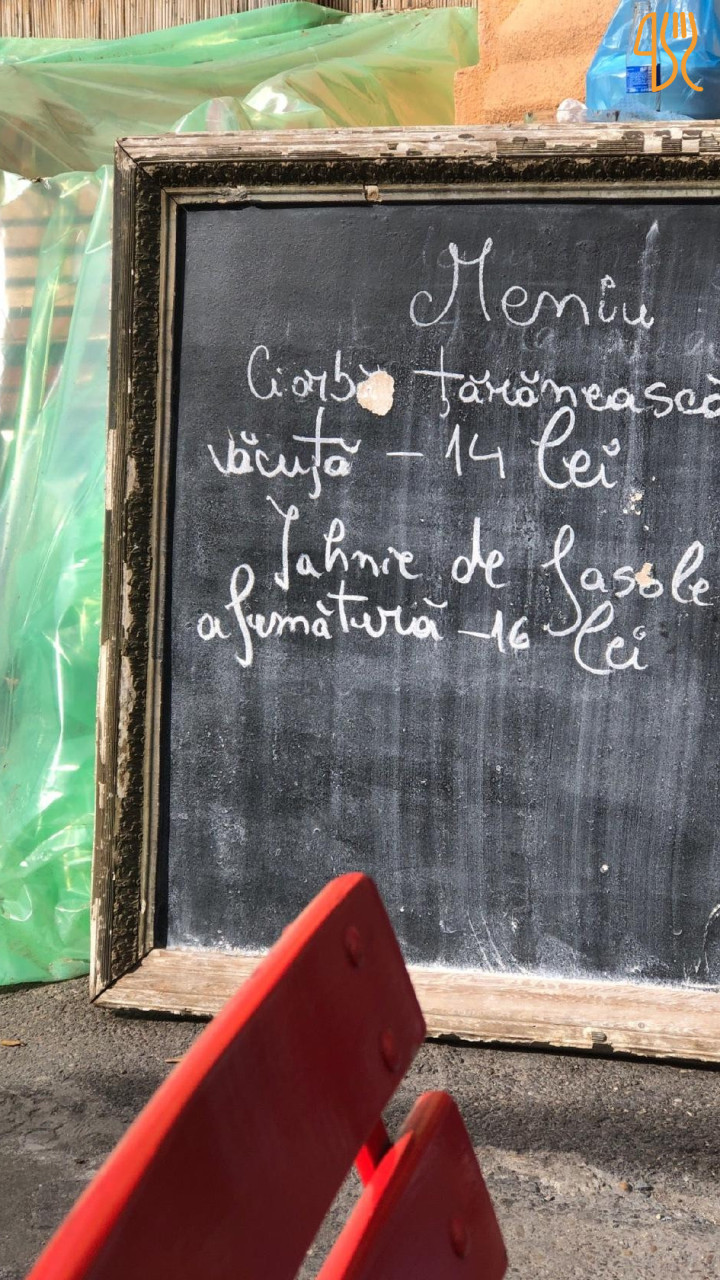 Meniu
Ciorbă țărănească
văcuță - 14 lei
Iahnie de fasole
afumătură - 16 lei